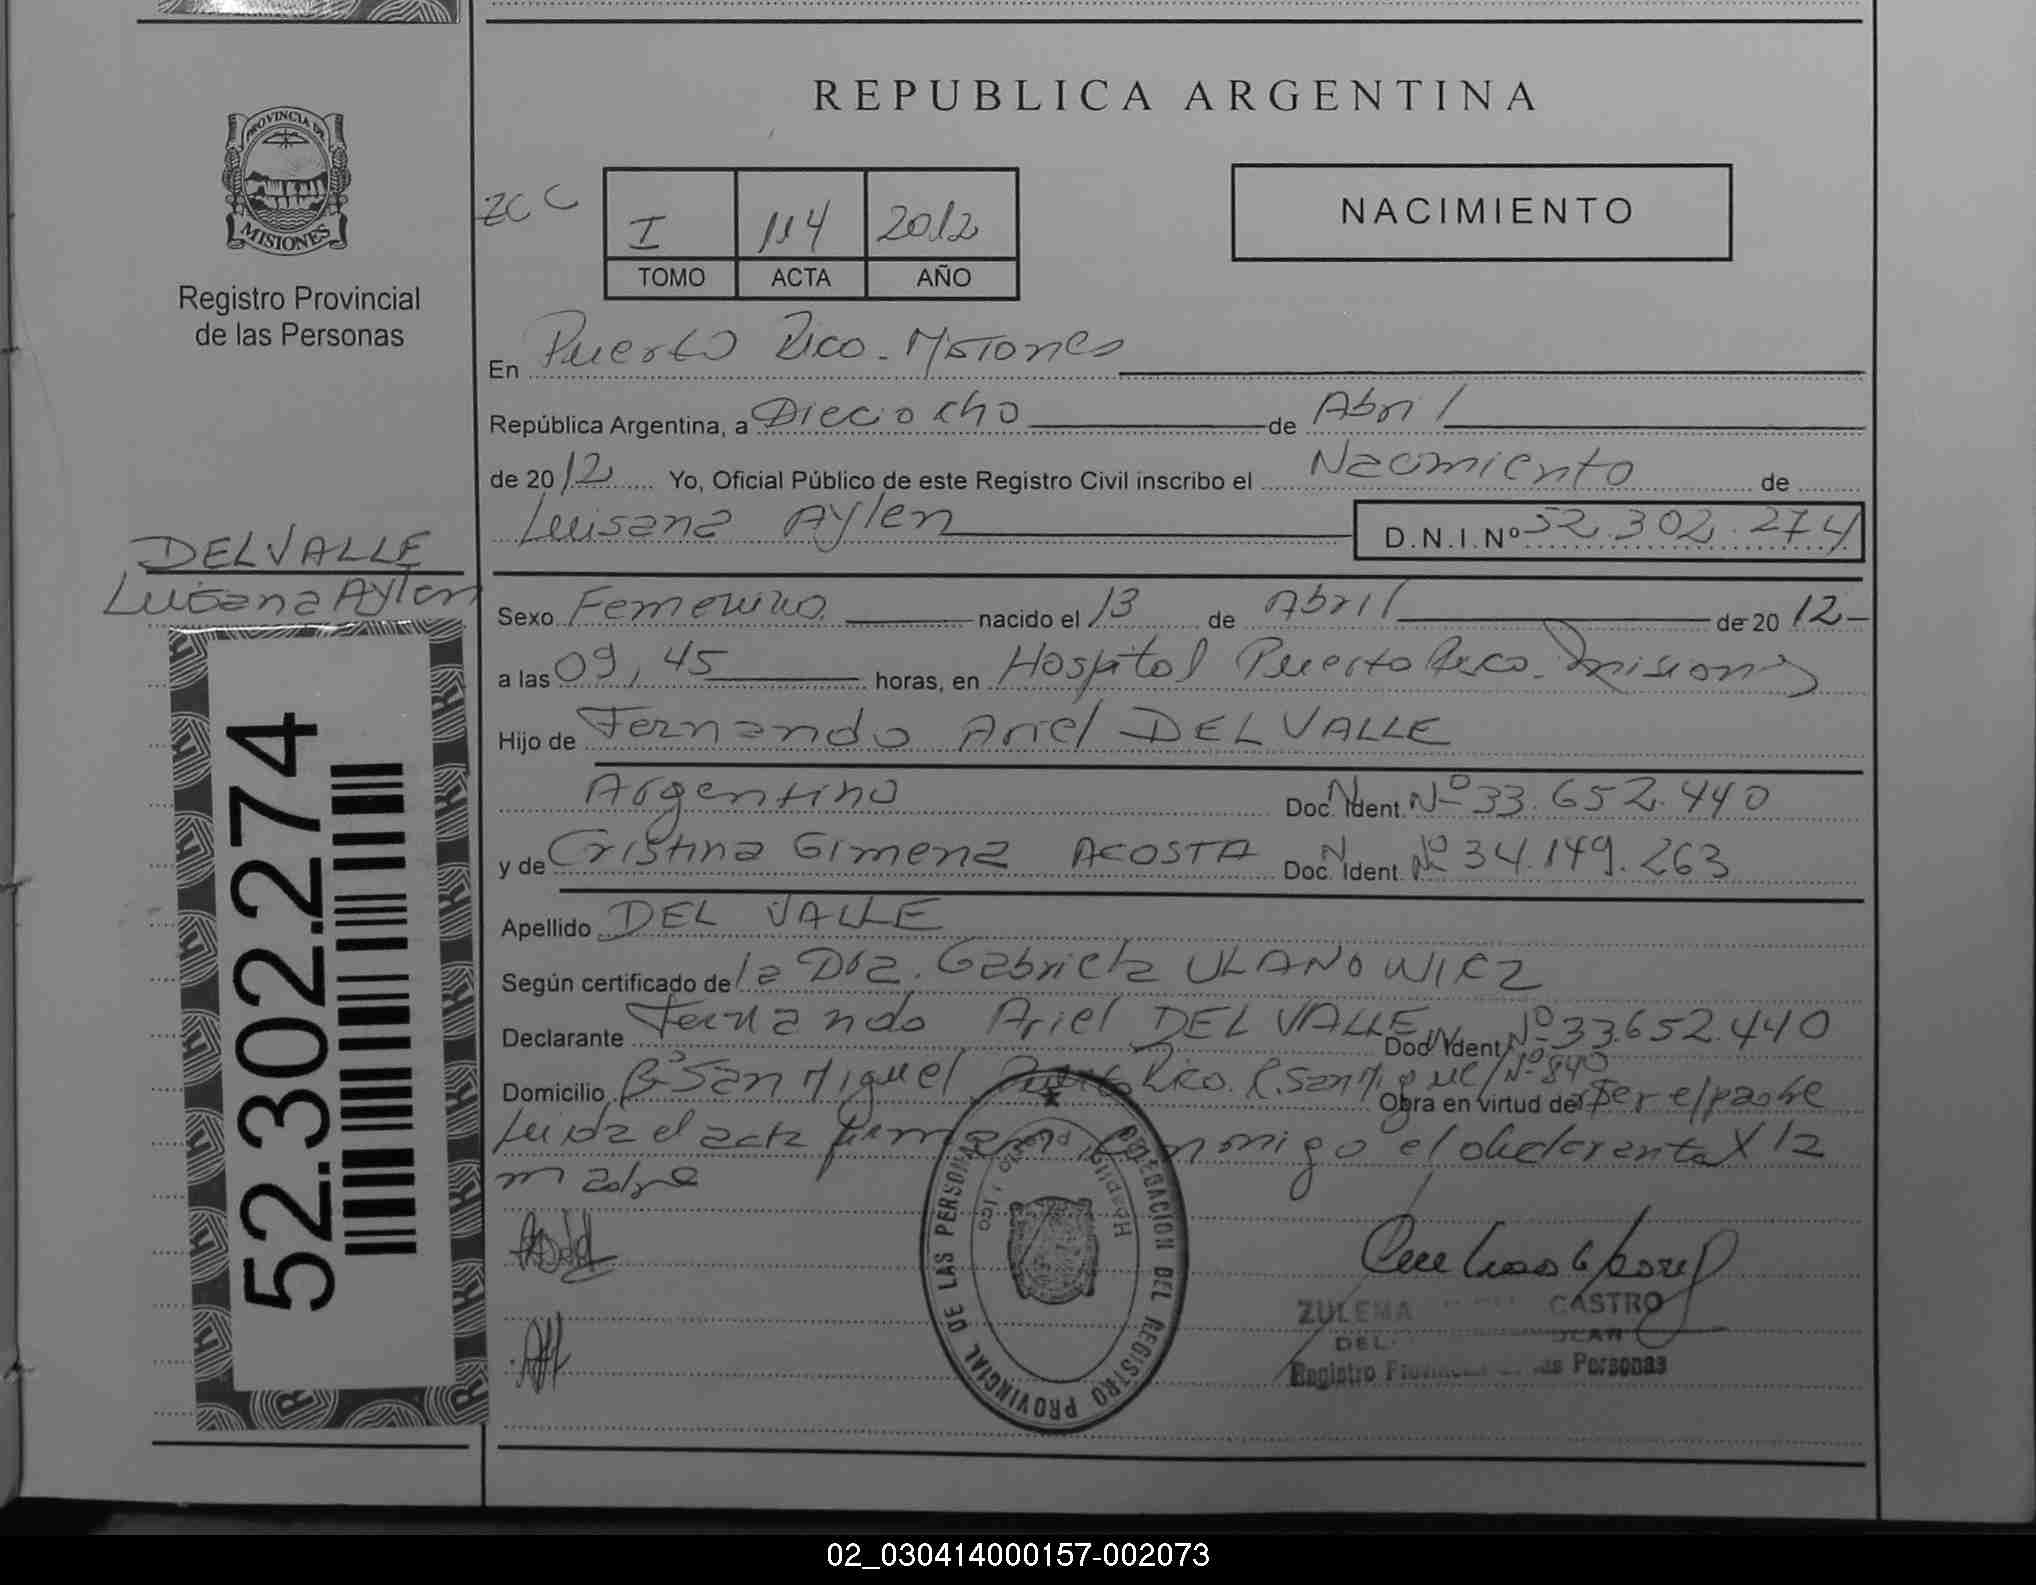 REPUBLICA ARGENTINA
PROVINCIA DE
MISIONES
Registro Provincial
de las Personas
ZCC
I 114 2012
TOMO ACTA AÑO
NACIMIENTO
En Puerto Rico - Misiones
República Argentina, a Dieciocho de Abril
de 2012 Yo, Oficial Público de este Registro Civil inscribo el Nacimiento de
Luisana Aylen D.N.I.Nº 52.302.274
DELVALLE
Luisana Aylen
52.302.274
Sexo Femenino nacido el 13 de Abril de 2012
a las 09,45 horas, en Hospital Puerto Rico - Misiones
Hijo de Fernando Ariel DEL VALLE
Argentino Doc. N. Ident. Nº 33.652.440
y de Cristina Gimena ACOSTA Doc. N. Ident. Nº 34.149.263
Apellido DEL VALLE
Según certificado de la Dra. Gabriela ULANOWICZ
Declarante Fernando Ariel DEL VALLE Doc. N. Ident. Nº 33.652.440
Domicilio Bº San Miguel Puerto Rico. C. San Miguel Nº 840
Obra en virtud de Ser el padre
Leida el acta firman conmigo el declarante y la
madre
DELEGACION DEL REGISTRO PROVINCIAL DE LAS PERSONAS
Hospital Puerto Rico
ZULEMA CASTRO
DEL.
Registro Provincial de las Personas
02_030414000157-002073